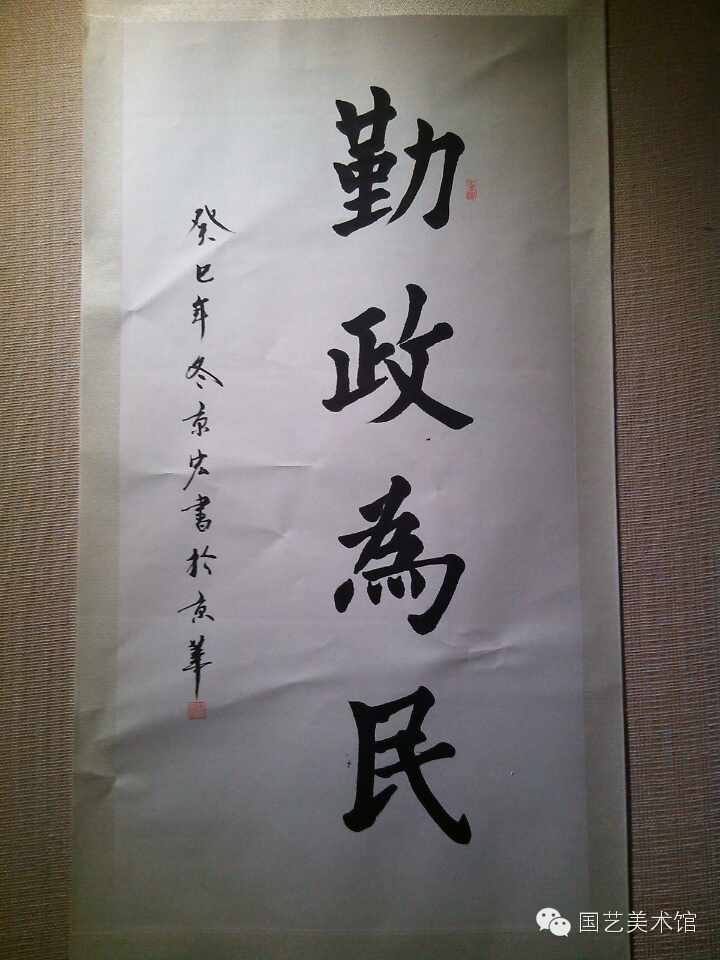 勤政為民
癸巳年冬京宏書於京華
国艺美术馆